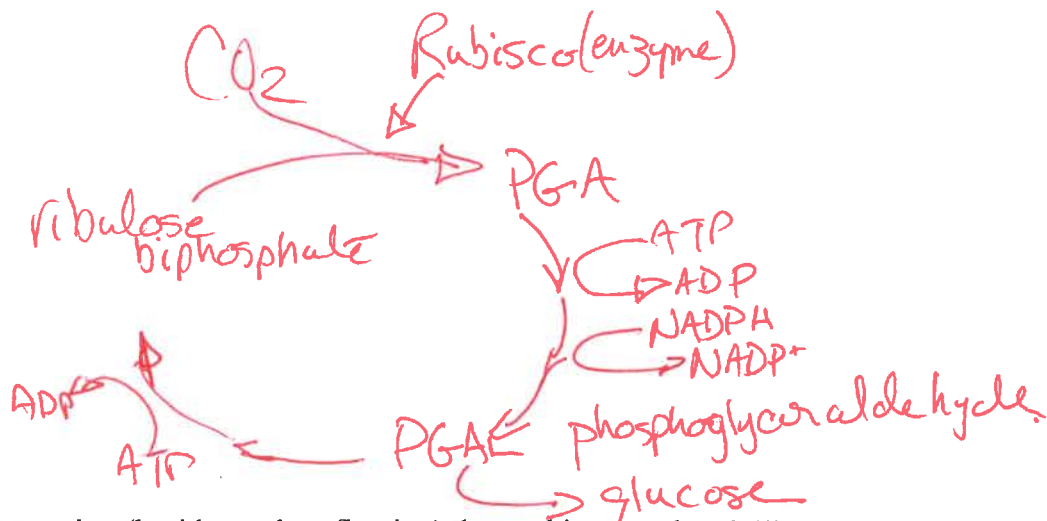 CO2
Rubisco(enzyme)
PGA
ribulose
biphosphate
ATP
ADP
NADPH
NADP+
ADP
ATP
PGAL
phosphoglyceraldehyde
glucose